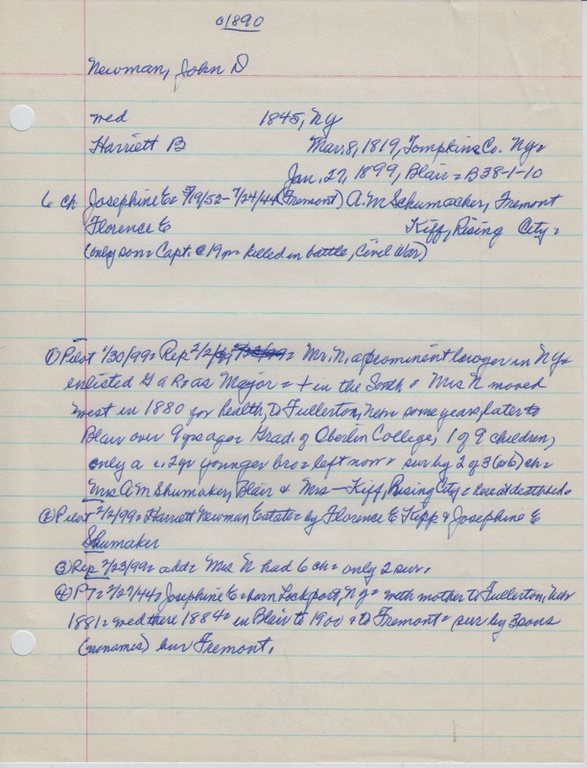 c1890
Newman, John D
wed 1845, NY
Harriett B Mar. 8, 1819, Tompkins Co. NY=
Jan. 27, 1899, Blair = B38-1-10
6 ch Josephine E = 5/19/52 - 7/24/44 (Fremont) A. M Schumacher, Fremont
Florence E Kiff, Rising City =
(only son = Capt. @ 19 yr = killed in battle, Civil War)
① Pilot 1/30/99 = Rep 2/2/99 = Mr. N, a prominent lawyer in NY =
enlisted G a R as Major = + in the South = Mrs N moved
west in 1880 for health, to Fullerton, Nebr some years later to
Blair over 9 yrs ago = Grad. of Oberlin College, 1 of 9 children,
only a 2 yr younger bro = left now = sur by 2 of 3 (or 6) ch =
Mrs A. M Shumaker, Blair & Mrs — Kiff, Rising City =
② Pilot 2/2/99 = Harriett Newman Estate = by Florence E Kipp & Josephine E
Shumaker
③ Rep 2/23/99 = add = Mrs N had 6 ch = only 2 sur.
④ PT = 7/27/44 = Josephine E = born Lockport, NY = with mother to Fullerton, Nebr
1881 = wed there 1884 = in Blair to 1900 = to Fremont = sur by 3 sons
(no names) bur Fremont.